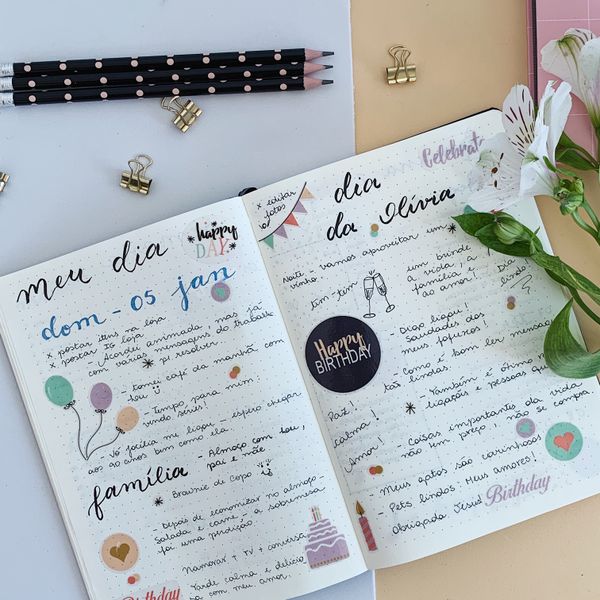 meu dia
happy
DAY
dom - 05 jan
x postar itens na loja
x postar IG loja
- Acordei animada, mas já
com várias mensagens do trabalho
p/ resolver.
- tomei café da manhã com
- Tempo para mim:
vendo séries!
- Vó Jocília me ligou - espero chegar
aos 90 anos bem como ela.
família - Almoço com
pai e mãe
Brownie de Copo
- Depois de economizar no almoço
salada e carne, a sobremesa
foi uma perdição.
Namorar + TV + conversa
Tarde calma e delícia
com meu amor.
Birthday
x editar
fotos
dia
da Olívia
Celebrate
Noite - vamos aproveitar um
vinho.
tim-tim
um brinde
à vida, à
família e
ao amor!
Dia
lindo!
HAPPY
BIRTHDAY
- Diga ligou!
Saudades dos
meus
- Como é bom ler mensagens
lindas.
Paz!
- Também é ótimo
ligações e pessoas que
calma!
Amor!
- Coisas importantes da vida
não tem preço, não se compra
- Meus aptos são carinhosos
Pets lindos: Meus amores!
Obrigada Jesus
Birthday